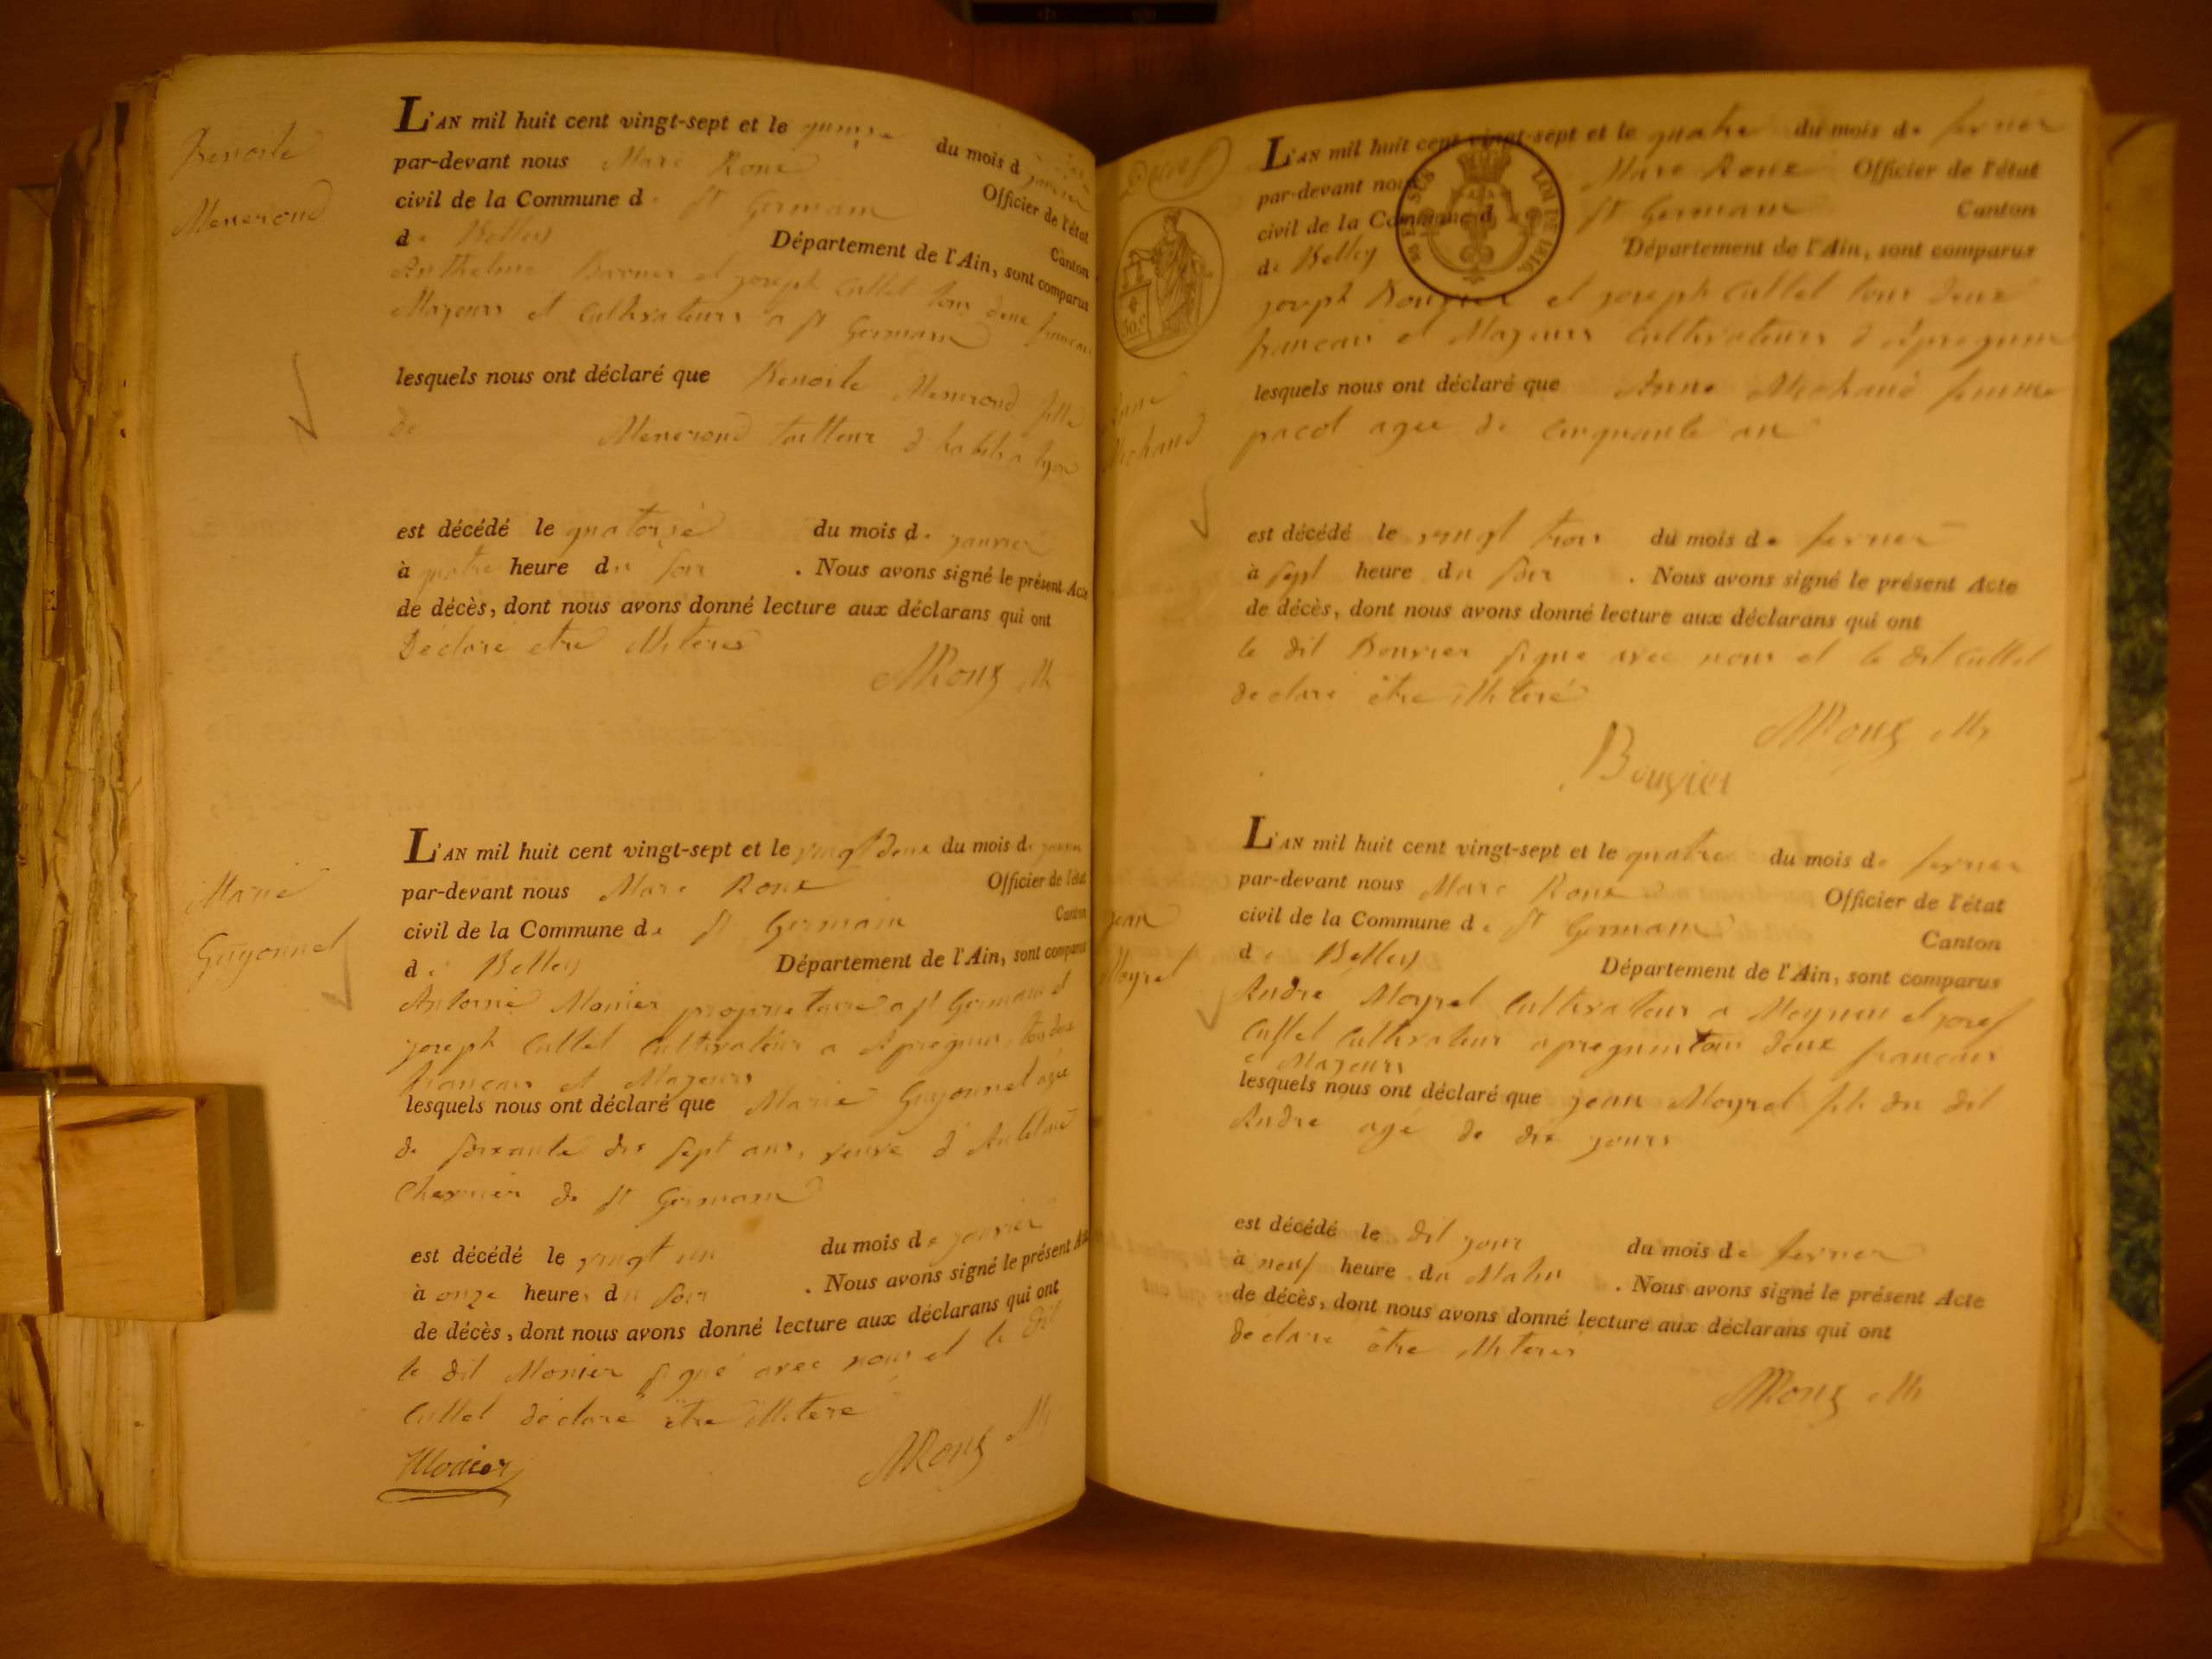 Benoite
Menerond
L'AN mil huit cent vingt-sept et le quinze du mois d janvier
par-devant nous Marc Roux Officier de l'état
civil de la Commune d. St Germain Canton
de Belley Département de l'Ain, sont comparus
Anthelme et joseph Cullet tous deux francais
Majeurs et Cultivateurs a St Germain
lesquels nous ont déclaré que Benoite Menerond fille
de Menerond tailleur d'habits a lyon
est décédé le quatorze du mois d. janvier
à quatre heure du soir . Nous avons signé le présent Acte
de décès, dont nous avons donné lecture aux déclarans qui ont
Déclaré etre illiteres
MRoux M
Marie
Guyonnet
L'AN mil huit cent vingt-sept et le vingt deux du mois de janvier
par-devant nous Marc Roux Officier de l'état
civil de la Commune de St Germain Canton
de Belley Département de l'Ain, sont comparus
Antoine Monier proprietaire a St Germain et
joseph Cullet Cultivateur a tous deux
francais et Majeurs
lesquels nous ont déclaré que Marie Guyonnet agée
de soixante dix sept ans, veuve d'Antelme
Chervier de St Germain
est décédé le vingt un du mois de janvier
à onze heures du soir . Nous avons signé le présent Acte
de décès, dont nous avons donné lecture aux déclarans qui ont
le dit Monier signé avec nous et le dit
Cullet déclaré être illiteré
Monier
MRoux M
TIMBRE 1816
L'AN mil huit cent vingt-sept et le quatre du mois de fevrier
par-devant nous Marc Roux Officier de l'état
civil de la Commune d St Germain Canton
de Belley Département de l'Ain, sont comparus
joseph Bouvier et joseph Cullet tous deux
francais et Majeurs Cultivateurs
Anne
Michaud
lesquels nous ont déclaré que Anne Michaud femme
pacot agee de cinquante an
est décédé le vingt trois du mois de fevrier
à sept heure du soir . Nous avons signé le présent Acte
de décès, dont nous avons donné lecture aux déclarans qui ont
le dit Bouvier signé avec nous et le dit Cullet
declaré être illiteré
MRoux M
Bouvier
L'AN mil huit cent vingt-sept et le quatre du mois de fevrier
par-devant nous Marc Roux Officier de l'état
jean
Moyret
civil de la Commune d. St Germain Canton
de Belley Département de l'Ain, sont comparus
Andre Moyret Cultivateur a et josef
Cullet Cultivateur a pregnin tous deux francais
et Majeurs
lesquels nous ont déclaré que jean Moyret fils du dit
Andre agé de dix jours
est décédé le dit jour du mois de fevrier
à neuf heure du Matin . Nous avons signé le présent Acte
de décès, dont nous avons donné lecture aux déclarans qui ont
declaré être illiteres
MRoux M